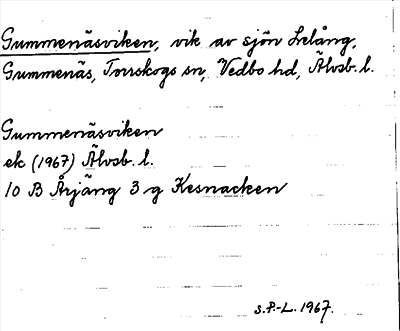 Gummenäsviken, vik av sjön Lelång,
Gummenäs, Torrskogs sn, Vedbo hd, Älvsb. l.
Gummenäsviken
ek (1967) Älvsb. l.
10 B Årjäng 3 g Kesnacken
S.P.-L. 1967.